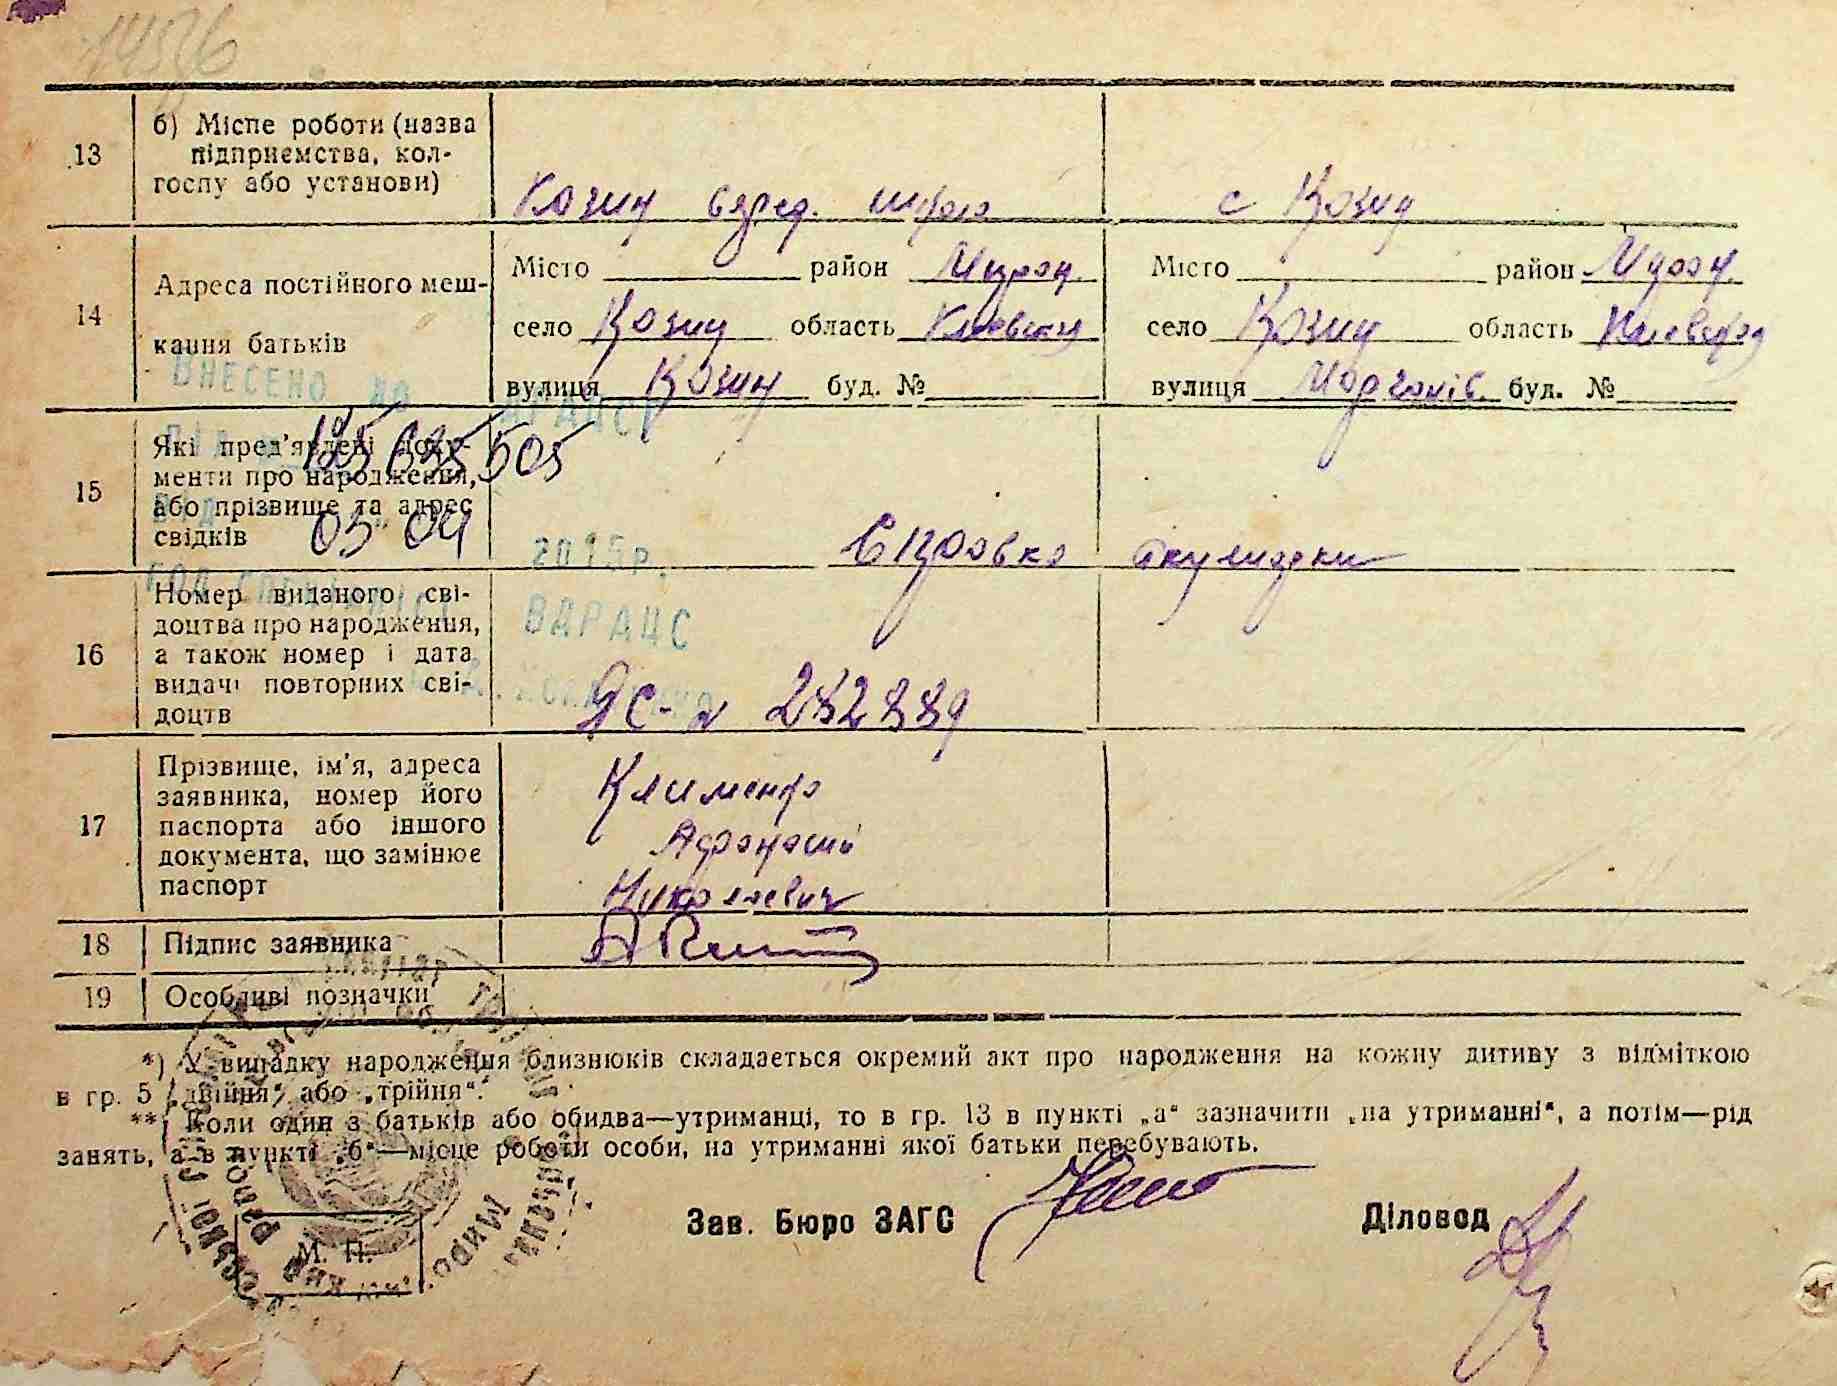 13
б) Місце роботи (назва
підприємства, кол-
госпу або установи)
Козин серед. школа
с Козин
14
Адреса постійного меш-
кання батьків
Місто район Мирон.
село Козин область Киевская
вулиця Козин буд. №
Місто район Мирон.
село Козин область Киевская
вулиця буд. №
ВНЕСЕНО ДО ДРАЦСГ
15
Які пред'явлені доку-
менти про народження,
або прізвище та адрес
свідків
05 04
2015р.
16
Номер виданого сві-
доцтва про народження,
а також номер і дата
видачі повторних сві-
доцтв
ВДРАЦС
ЯС-№ 282889
17
Прізвище, ім'я, адреса
заявника, номер його
паспорта або іншого
документа, що замінює
паспорт
Клименко
Афанасий
Николаевич
18
Підпис заявника
19
Особливі позначки
*) У випадку народження близнюків складається окремий акт про народження на кожну дитину з відміткою
в гр. 5 „двійня" або „трійня".
**) Коли один з батьків або обидва—утриманці, то в гр. 13 в пункті „а" зазначити „на утриманні", а потім—рід
занять, а в пункті „б"—місце роботи особи, на утриманні якої батьки перебувають.
Зав. Бюро ЗАГС
Діловод
М. П.